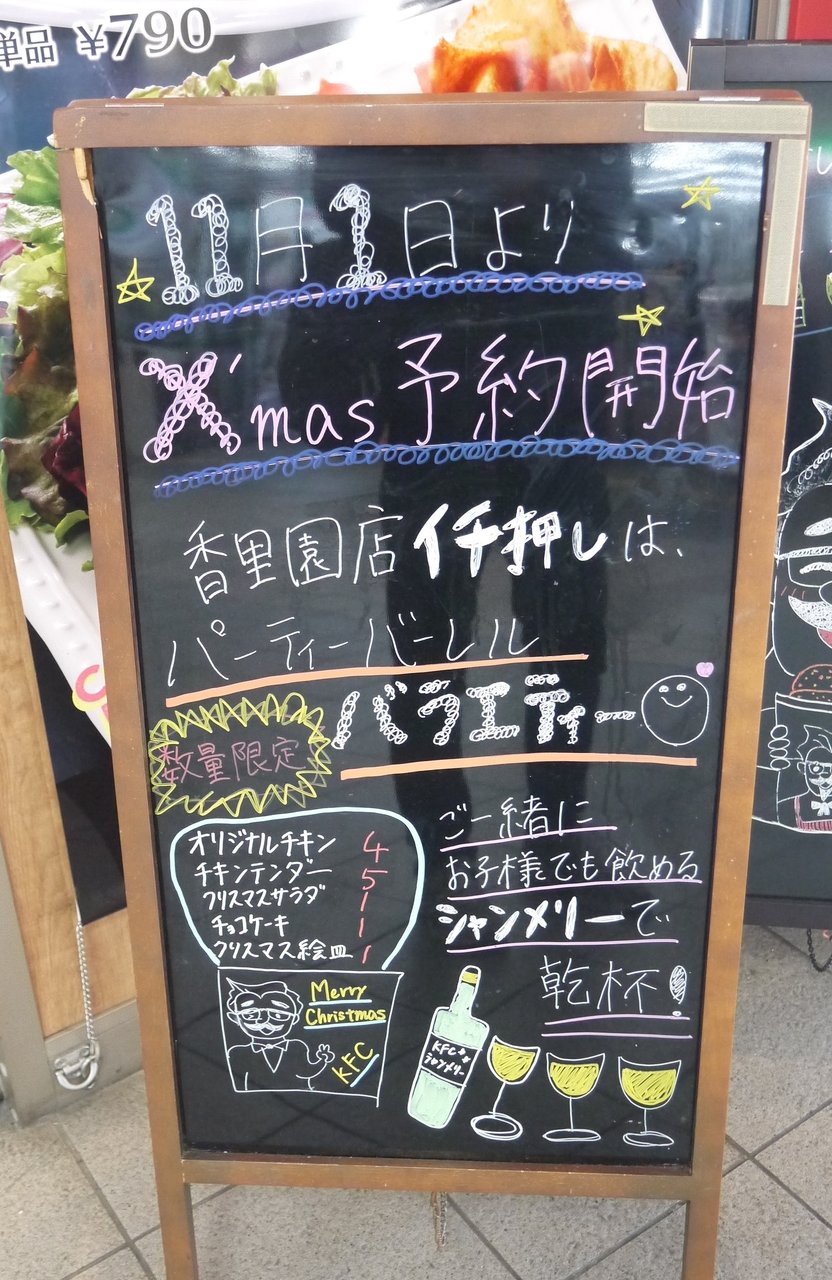 単品 ¥790
11月1日より
X'mas予約開始
香里園店イチ押しは、
パーティーバーレル
バラエティー
数量限定
オリジナルチキン 4
チキンテンダー 5
クリスマスサラダ 1
チョコケーキ 1
クリスマス絵皿 1
ご一緒に
お子様でも飲める
シャンメリーで
乾杯!
Merry
Christmas
KFC
KFC
シャンメリー